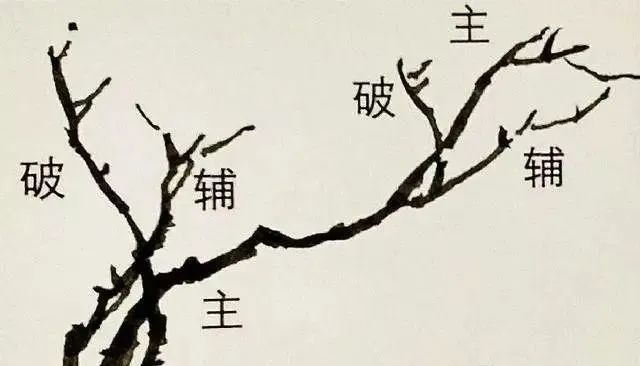 主
破
破
辅
辅
主